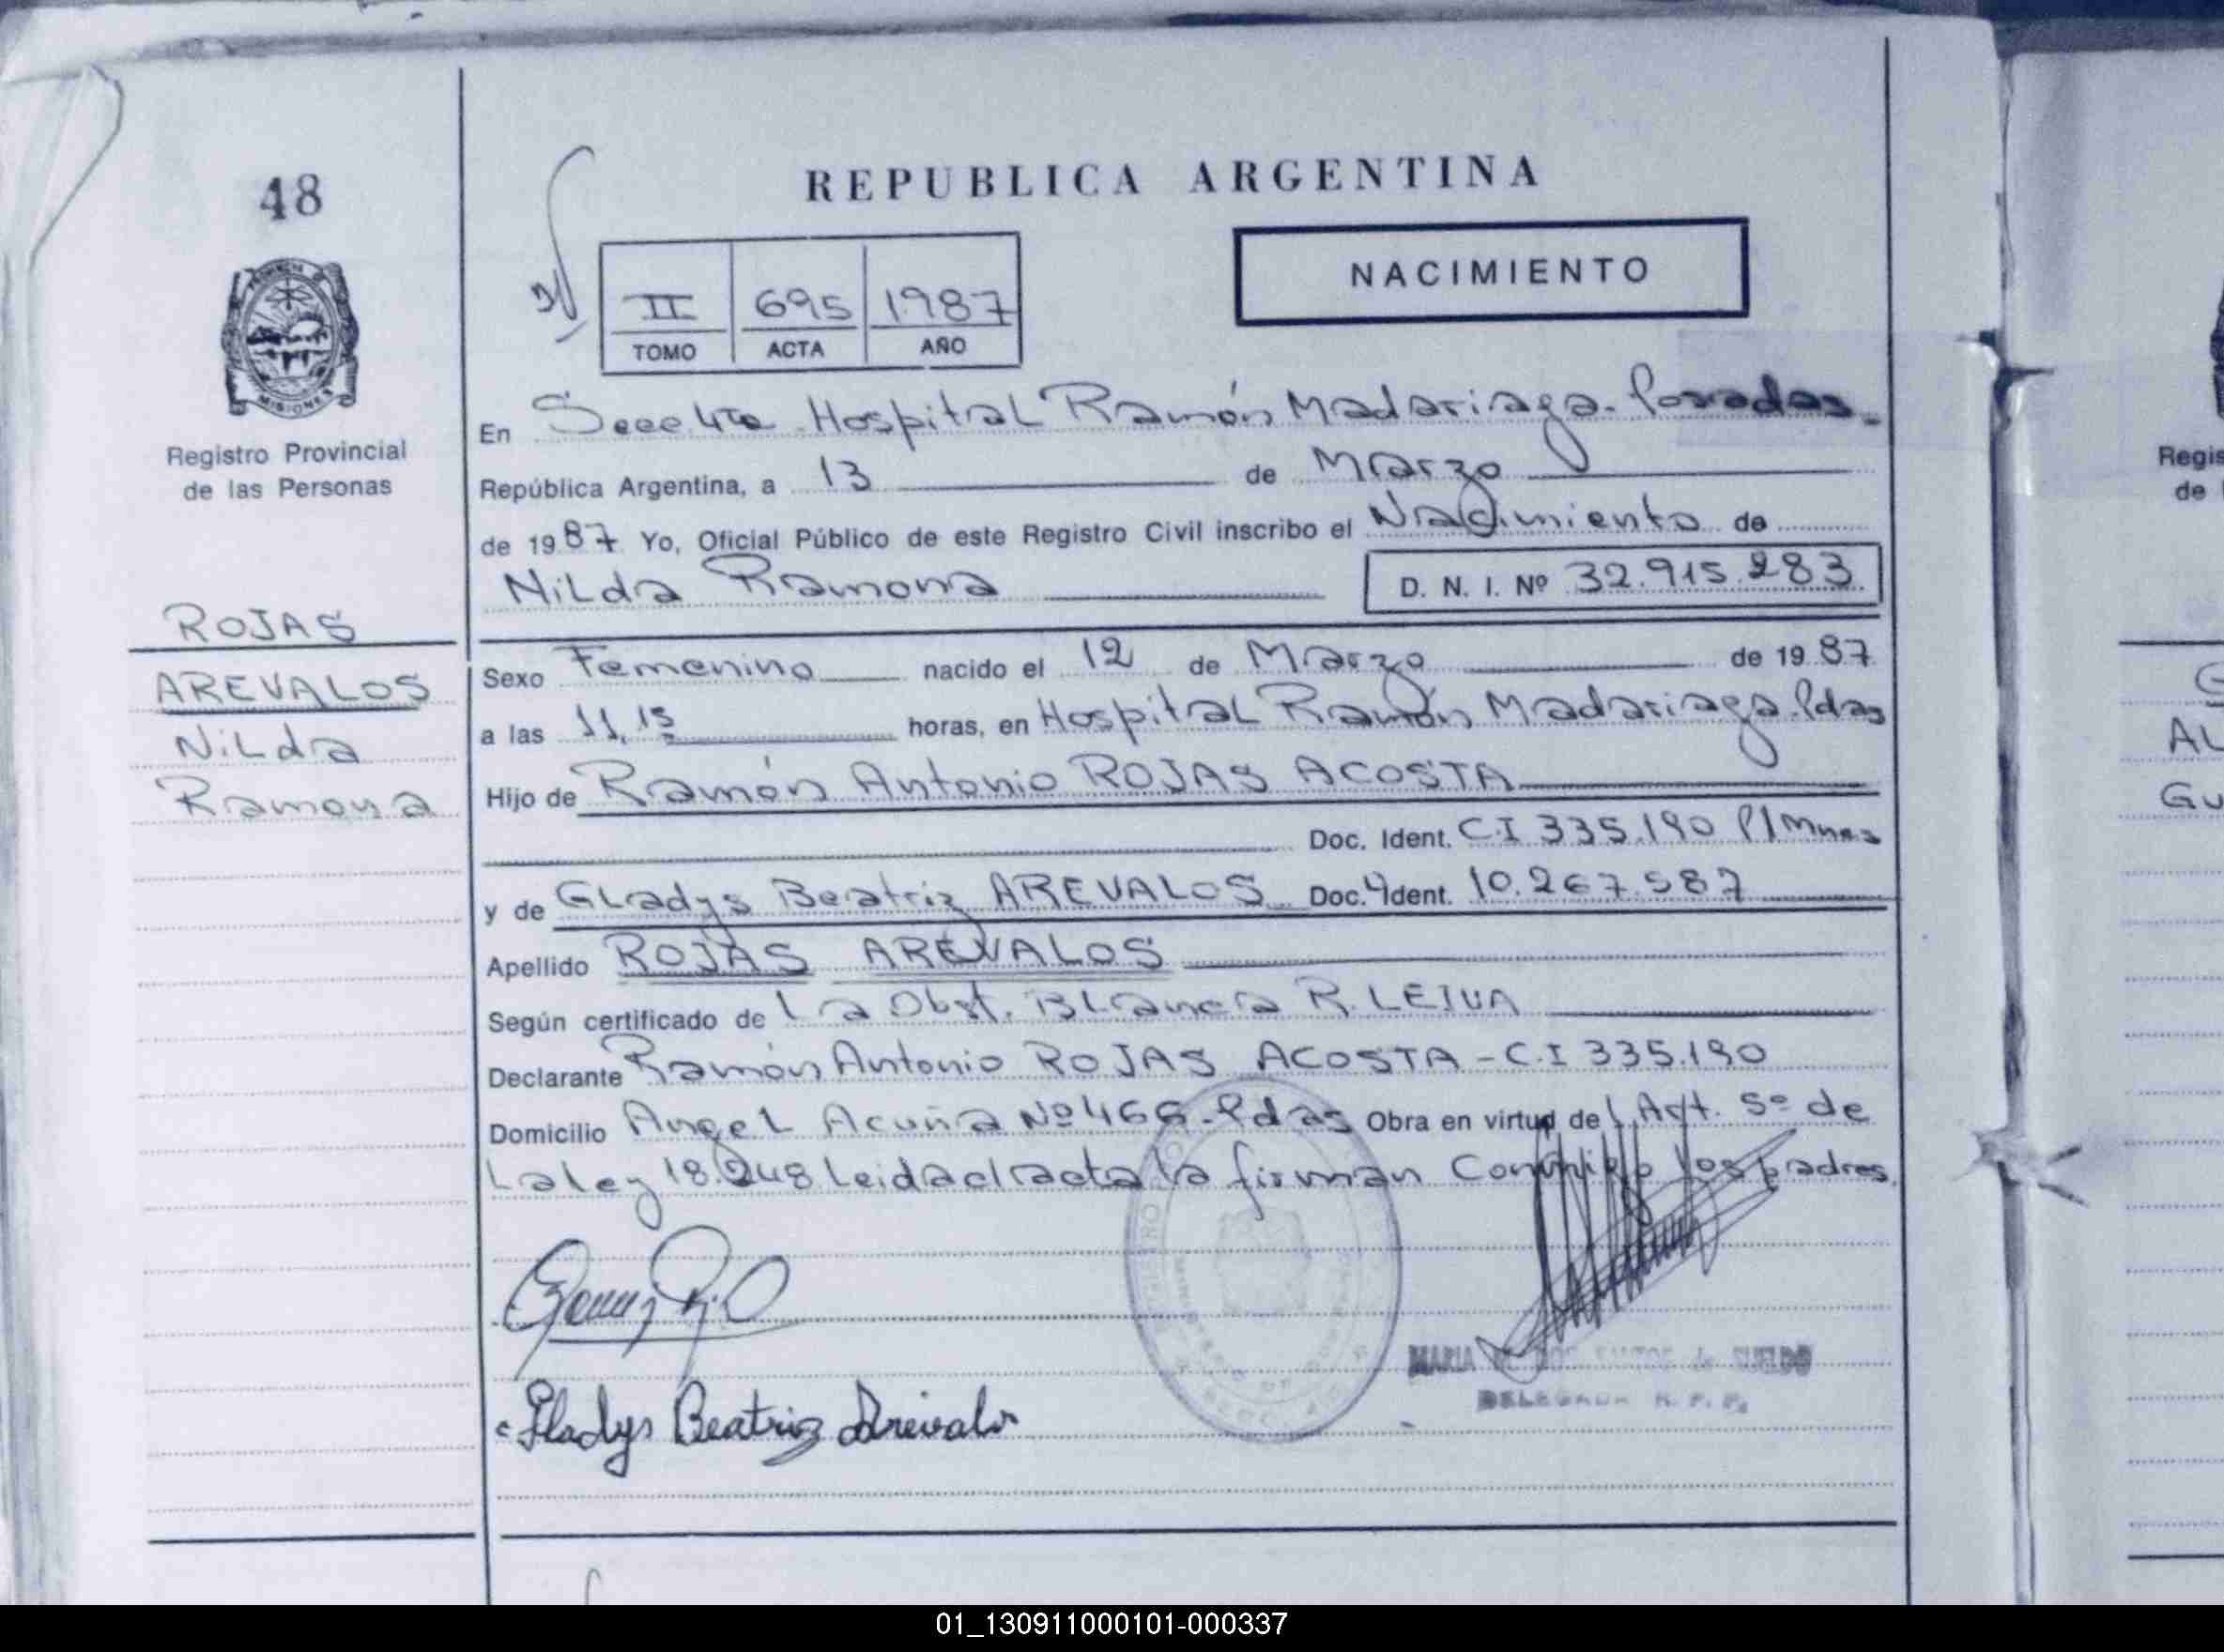 48
REPUBLICA ARGENTINA
NACIMIENTO
II 695 1987
TOMO ACTA AÑO
PROVINCIA DE
MISIONES
Registro Provincial
de las Personas
ROJAS
AREVALOS
Nilda
Ramona
En Secc 4ta Hospital Ramón Madariaga. Posadas.
República Argentina, a 13 de Marzo
de 1987 Yo, Oficial Público de este Registro Civil inscribo el Nacimiento de
Nilda Ramona D. N. I. Nº 32.915.283
Sexo Femenino nacido el 12 de Marzo de 1987
a las 11,15 horas, en Hospital Ramón Madariaga. Pdas
Hijo de Ramón Antonio ROJAS ACOSTA
Doc. Ident. C.I 335.190 P/Mnes
y de Gladys Beatriz AREVALOS Doc. Ident. 10.267.587
Apellido ROJAS AREVALOS
Según certificado de la Obst. Blanca R. LEIVA
Declarante Ramón Antonio ROJAS ACOSTA - C.I 335.190
Domicilio Angel Acuña Nº 466 - Pdas Obra en virtud del Art. 5º de
La ley 18.248 Leida el acta la firman Conmigo los padres
Gladys Beatriz Arevalo
MARIA DOS SANTOS de SUELDO
DELEGADA R. P. P.
Regis
de l
AL
Gu
01_130911000101-000337